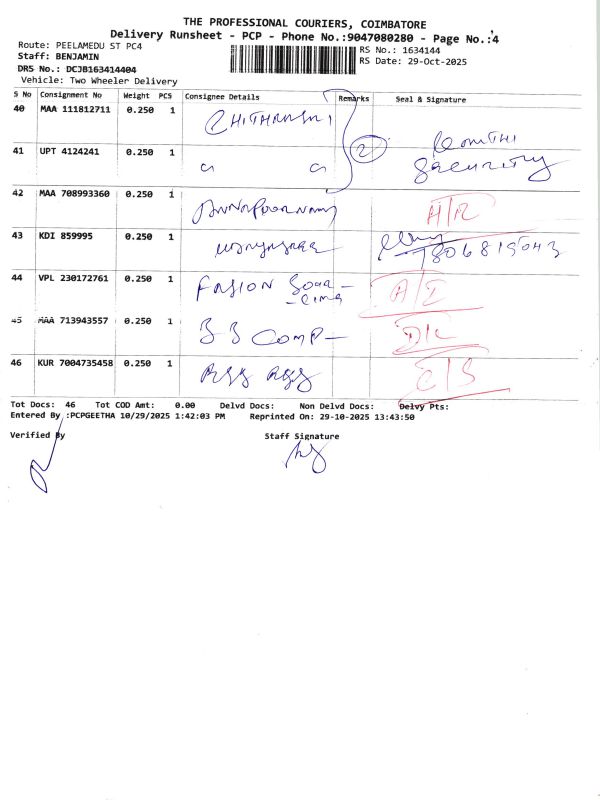 THE PROFESSIONAL COURIERS, COIMBATORE
Delivery Runsheet - PCP - Phone No.:9047080280 - Page No.:4
Route: PEELAMEDU ST PC4
RS No.: 1634144
Staff: BENJAMIN
RS Date: 29-Oct-2025
DRS No.: DCJB163414404
Vehicle: Two Wheeler Delivery
S No Consignment No Weight PCS Consignee Details Remarks Seal & Signature
40 MAA 111812711 0.250 1
41 UPT 4124241 0.250 1 2 Security
42 MAA 708993360 0.250 1 A/R
43 KDI 859995 0.250 1
44 VPL 230172761 0.250 1 FASION A/I
45 MAA 713943557 0.250 1 COMP-
46 KUR 7004735458 0.250 1 C/S
Tot Docs: 46 Tot COD Amt: 0.00 Delvd Docs: Non Delvd Docs: Delvy Pts:
Entered By :PCPGEETHA 10/29/2025 1:42:03 PM Reprinted On: 29-10-2025 13:43:50
Verified By Staff Signature